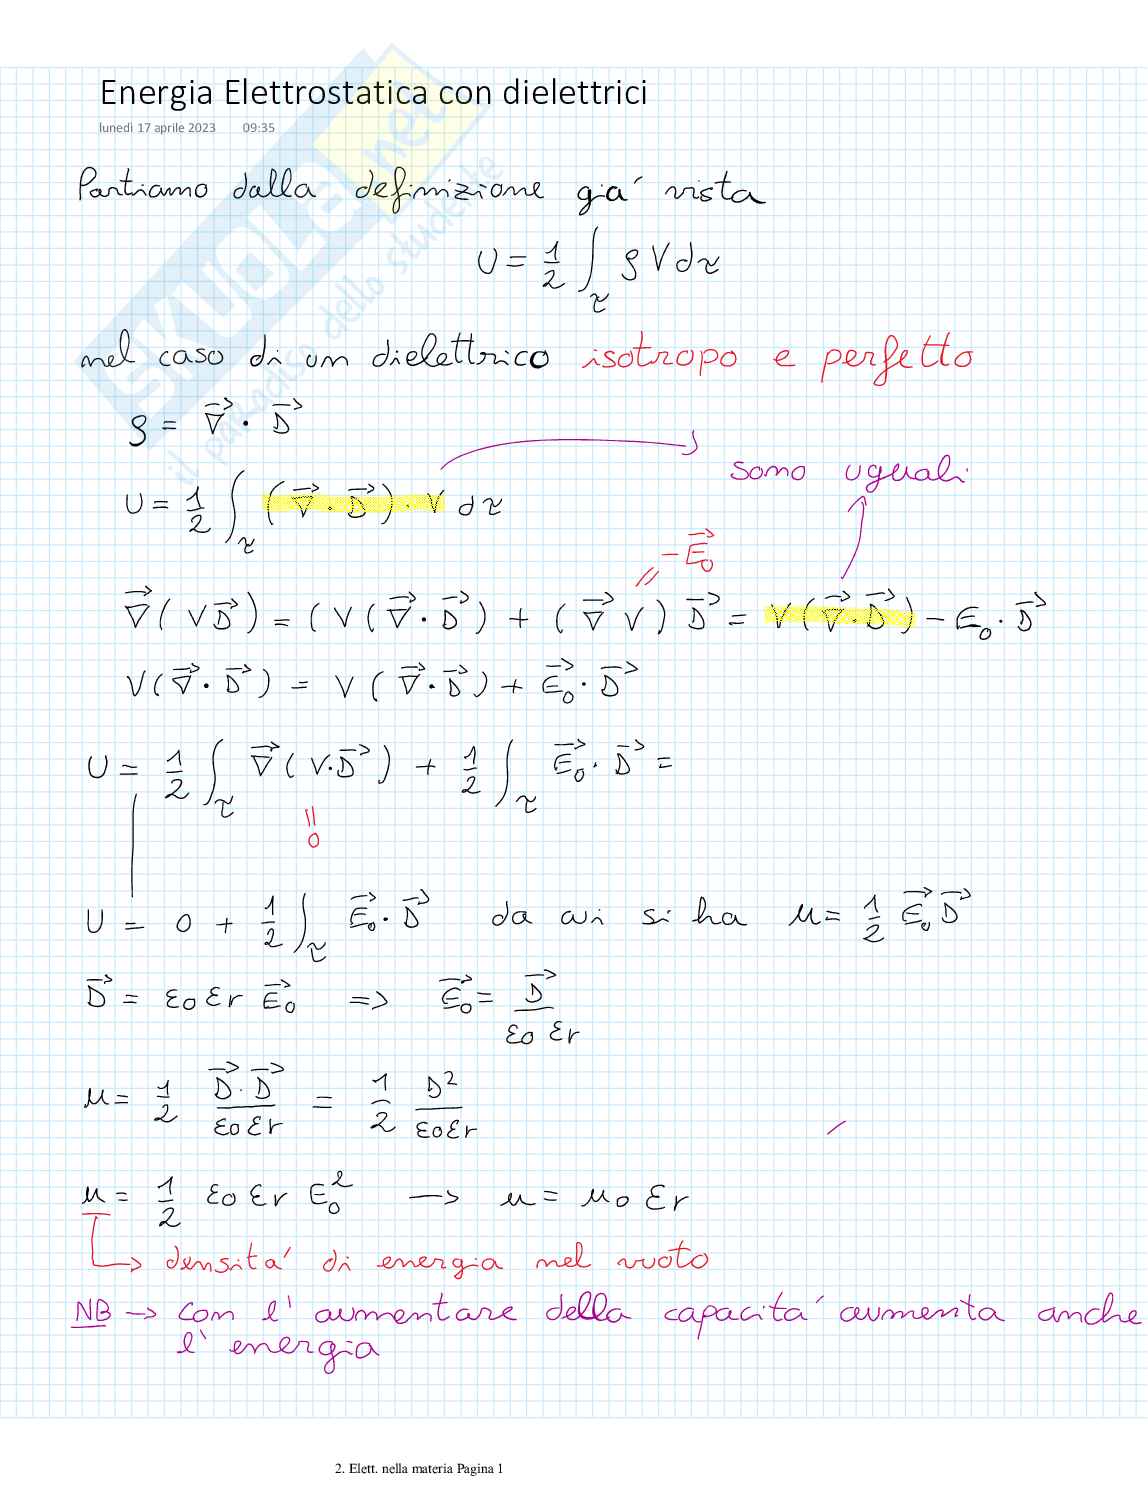 Energia Elettrostatica con dielettrici
lunedì 17 aprile 2023 09:35
SKUOLA.net
il paradiso dello studente
Partiamo dalla definizione già vista
U = 1/2 ∫_τ ρ V dτ
nel caso di un dielettrico isotropo e perfetto
ρ = ∇⃗ · D⃗
sono uguali
U = 1/2 ∫_τ (∇⃗ · D⃗) · V dτ
= -E⃗₀
∇⃗ (V D⃗) = (V (∇⃗ · D⃗) + (∇⃗ V) D⃗ = V (∇⃗ · D⃗) - E₀ · D⃗
V (∇⃗ · D⃗) = V (∇⃗ · D⃗) + E⃗₀ · D⃗
U = 1/2 ∫_τ ∇⃗ (V · D⃗) + 1/2 ∫_τ E⃗₀ · D⃗ =
= 0
U = 0 + 1/2 ∫_τ E⃗₀ · D⃗ da cui si ha u = 1/2 E⃗₀ D⃗
D⃗ = ε₀ εr E⃗₀ => E⃗₀ = D⃗ / ε₀ εr
u = 1/2 D⃗ · D⃗ / ε₀ εr = 1/2 D² / ε₀ εr
u = 1/2 ε₀ εr E₀² → u = u₀ εr
↳ densità di energia nel vuoto
NB → con l' aumentare della capacità aumenta anche
l' energia
2. Elett. nella materia Pagina 1